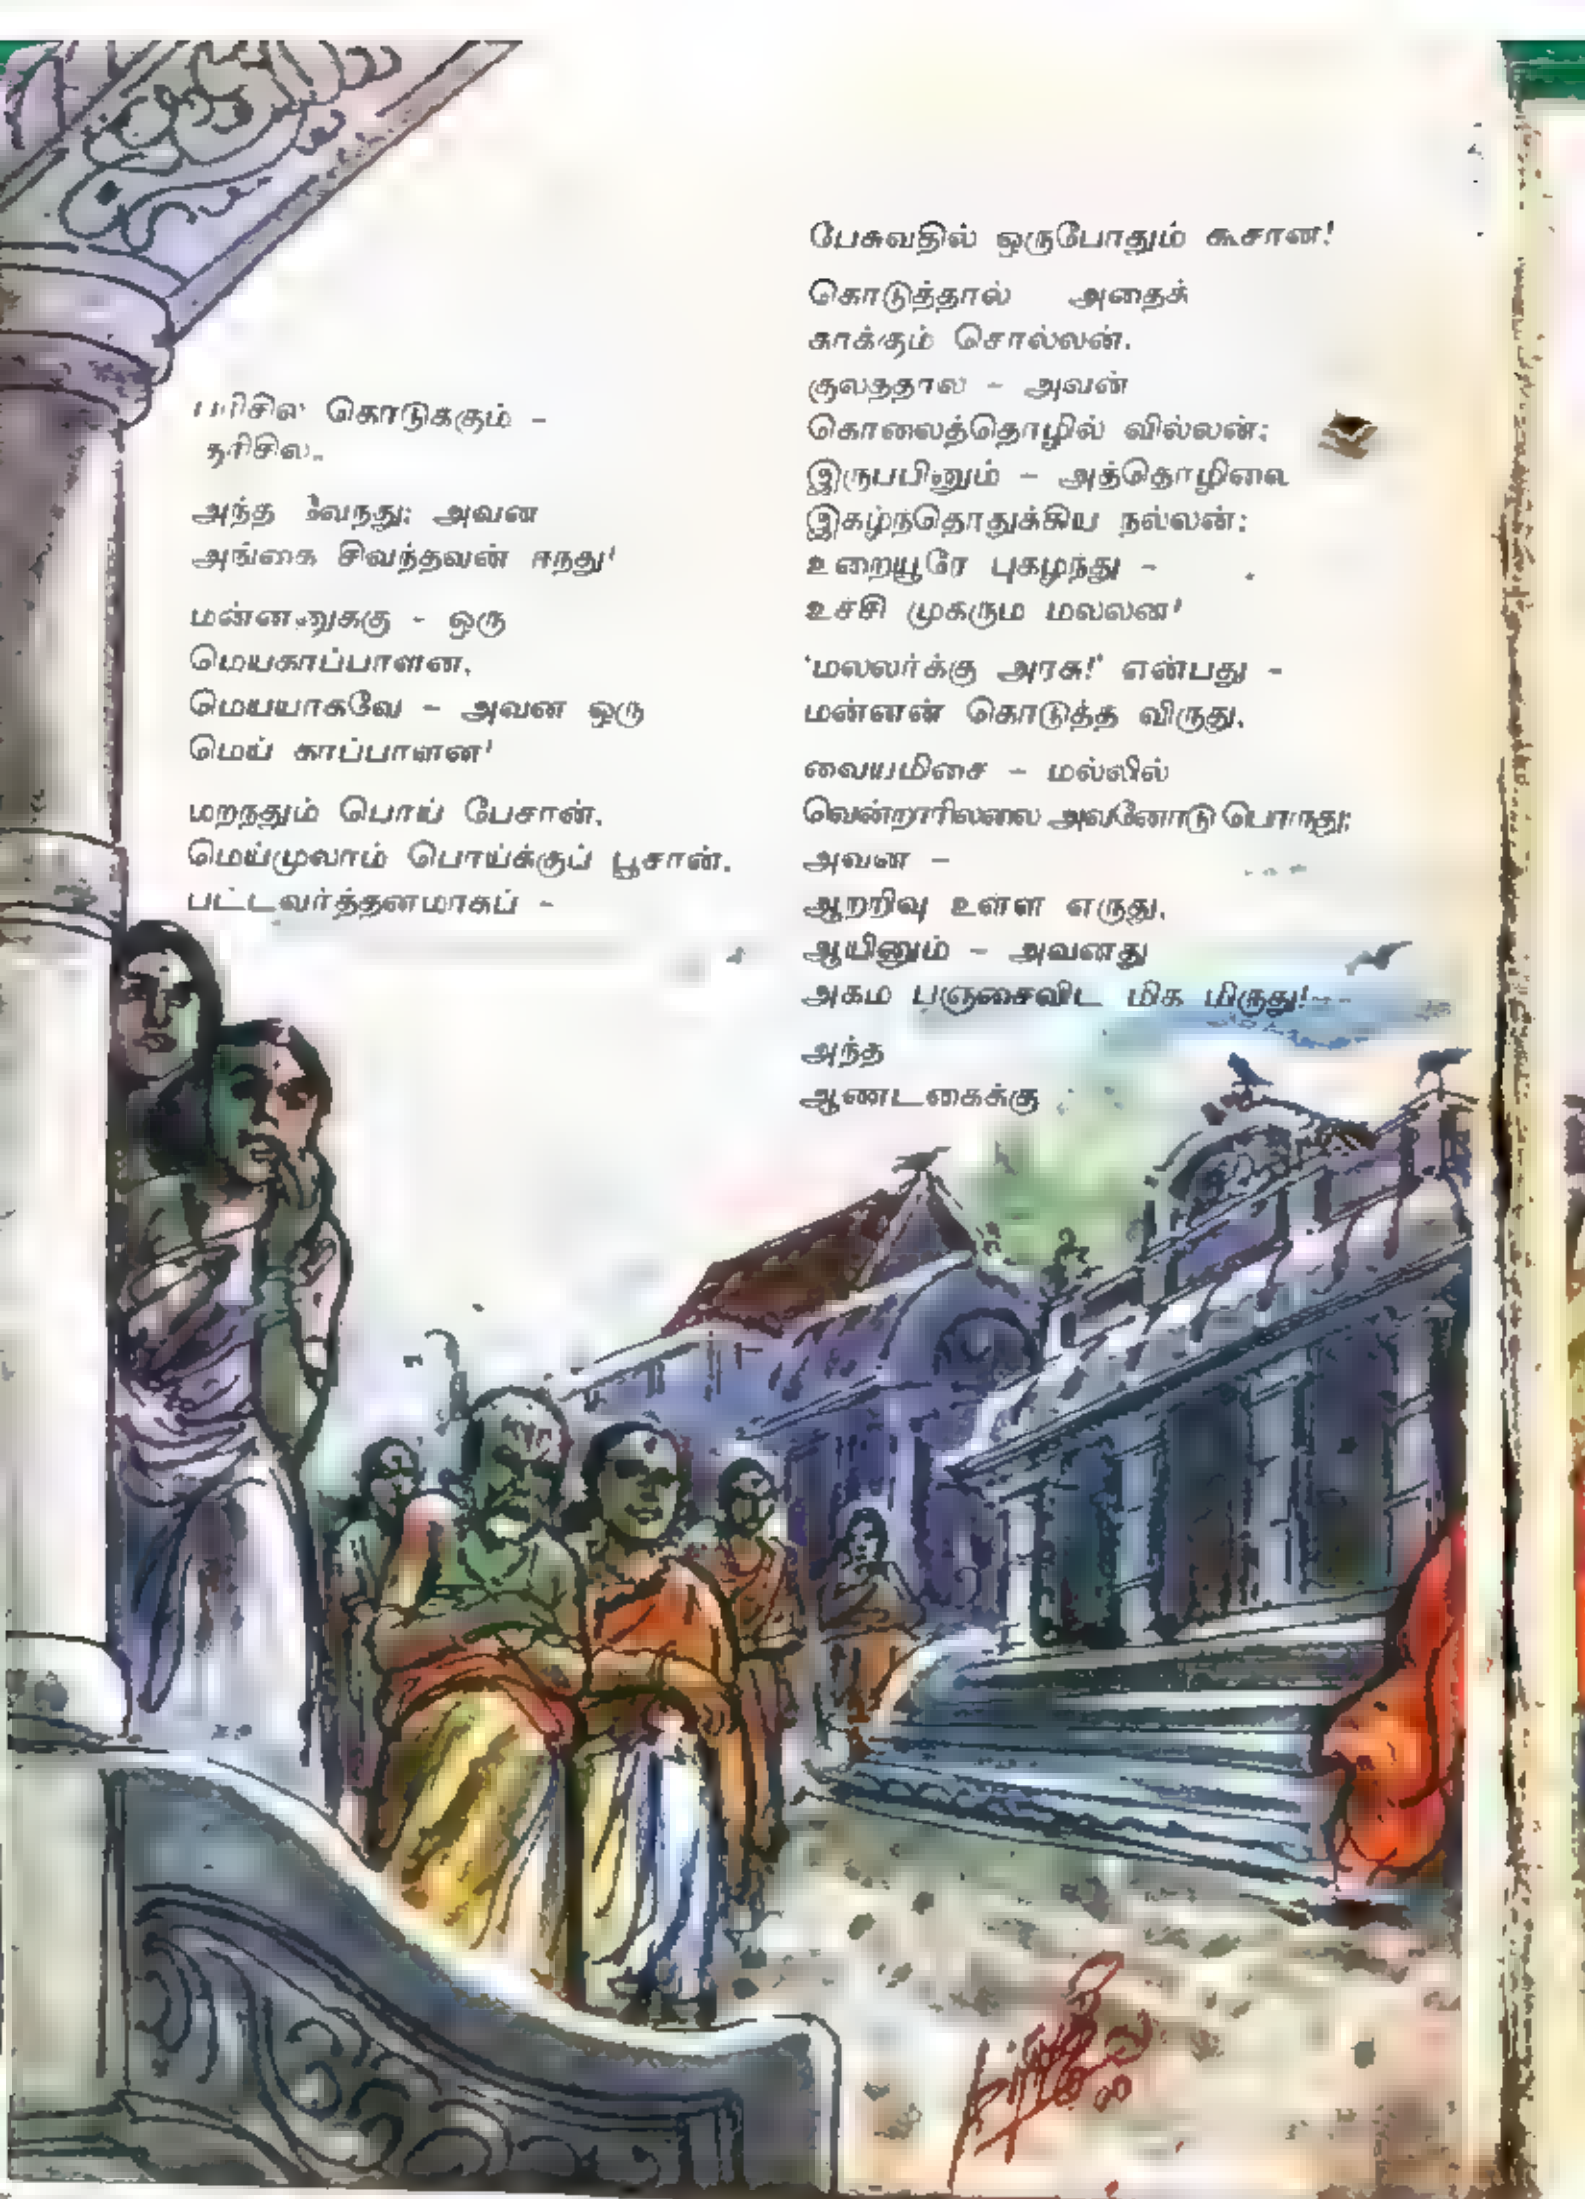 பரிசில் கொடுக்கும் -
தரிசில.
அந்த வேந்து; அவன்
அங்கை சிவந்தவன் ஈந்து!
மன்னனுக்கு - ஒரு
மெய்காப்பாளன்.
மெய்யாகவே - அவன் ஒரு
மெய் காப்பாளன்!
மறந்தும் பொய் பேசான்.
மெய்முலாம் பொய்க்குப் பூசான்.
பட்டவர்த்தனமாகப் -
பேசுவதில் ஒருபோதும் கூசான்!
கொடுத்தால் அதைக்
காக்கும் சொல்லன்.
குலத்தால் - அவன்
கொலைத்தொழில் வில்லன்;
இருப்பினும் - அத்தொழிலை
இகழ்ந்தொதுக்கிய நல்லன்;
உறையூரே புகழ்ந்து -
உச்சி முகரும் மல்லன்!
'மல்லர்க்கு அரசு!' என்பது -
மன்னன் கொடுத்த விருது.
வையமிசை - மல்லில்
வென்றாரில்லை அவனோடு பொருது;
அவன் -
ஆறறிவு உள்ள எருது.
ஆயினும் - அவனது
அகம் பஞ்சைவிட மிக மிருது!
அந்த
ஆண்டகைக்கு